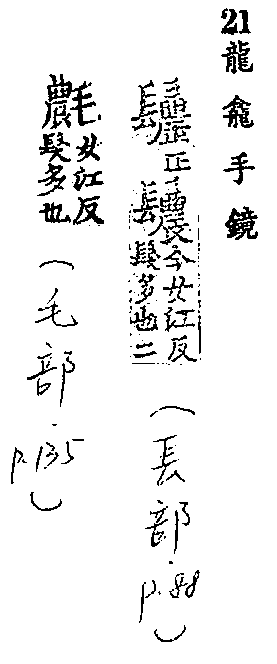 21 龍龕手鏡
正 今女江反
髮多也二
(長部.p.88)
女江反
髮多也
(毛部.p.135)